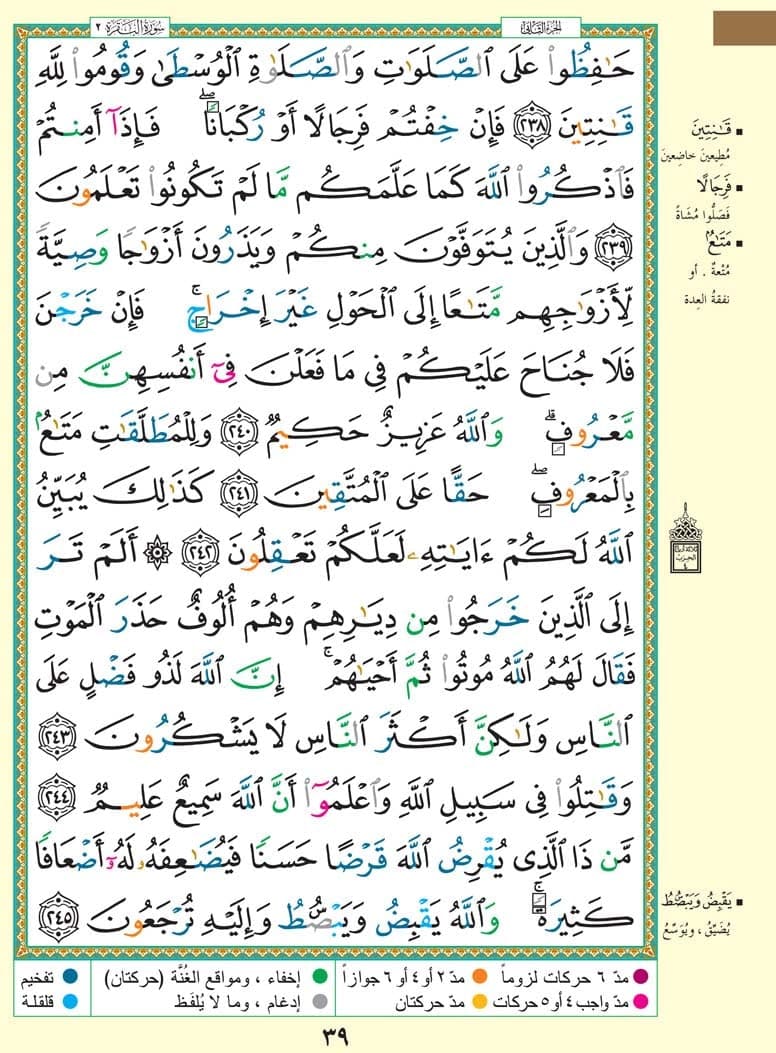 سُورَةُ البَقَرَة ٢
الجُزءُ الثَّاني
حَـٰفِظُوا۟ عَلَى ٱلصَّلَوَٰتِ وَٱلصَّلَوٰةِ ٱلْوُسْطَىٰ وَقُومُوا۟ لِلَّهِ
قَـٰنِتِينَ ﴿٢٣٨﴾ فَإِنْ خِفْتُمْ فَرِجَالًا أَوْ رُكْبَانًا ۖ فَإِذَآ أَمِنتُمْ
فَٱذْكُرُوا۟ ٱللَّهَ كَمَا عَلَّمَكُم مَّا لَمْ تَكُونُوا۟ تَعْلَمُونَ
﴿٢٣٩﴾ وَٱلَّذِينَ يُتَوَفَّوْنَ مِنكُمْ وَيَذَرُونَ أَزْوَٰجًا وَصِيَّةً
لِّأَزْوَٰجِهِم مَّتَـٰعًا إِلَى ٱلْحَوْلِ غَيْرَ إِخْرَاجٍ ۚ فَإِنْ خَرَجْنَ
فَلَا جُنَاحَ عَلَيْكُمْ فِى مَا فَعَلْنَ فِىٓ أَنفُسِهِنَّ مِن
مَّعْرُوفٍ ۗ وَٱللَّهُ عَزِيزٌ حَكِيمٌ ﴿٢٤٠﴾ وَلِلْمُطَلَّقَـٰتِ مَتَـٰعٌۢ
بِٱلْمَعْرُوفِ ۖ حَقًّا عَلَى ٱلْمُتَّقِينَ ﴿٢٤١﴾ كَذَٰلِكَ يُبَيِّنُ
ٱللَّهُ لَكُمْ ءَايَـٰتِهِۦ لَعَلَّكُمْ تَعْقِلُونَ ﴿٢٤٢﴾ ۞ أَلَمْ تَرَ
إِلَى ٱلَّذِينَ خَرَجُوا۟ مِن دِيَـٰرِهِمْ وَهُمْ أُلُوفٌ حَذَرَ ٱلْمَوْتِ
فَقَالَ لَهُمُ ٱللَّهُ مُوتُوا۟ ثُمَّ أَحْيَـٰهُمْ ۚ إِنَّ ٱللَّهَ لَذُو فَضْلٍ عَلَى
ٱلنَّاسِ وَلَـٰكِنَّ أَكْثَرَ ٱلنَّاسِ لَا يَشْكُرُونَ ﴿٢٤٣﴾
وَقَـٰتِلُوا۟ فِى سَبِيلِ ٱللَّهِ وَٱعْلَمُوٓا۟ أَنَّ ٱللَّهَ سَمِيعٌ عَلِيمٌ ﴿٢٤٤﴾
مَّن ذَا ٱلَّذِى يُقْرِضُ ٱللَّهَ قَرْضًا حَسَنًا فَيُضَـٰعِفَهُۥ لَهُۥٓ أَضْعَافًا
كَثِيرَةً ۚ وَٱللَّهُ يَقْبِضُ وَيَبْصُۜطُ وَإِلَيْهِ تُرْجَعُونَ ﴿٢٤٥﴾
▪ قَـٰنِتِينَ
مُطيعينَ خاضِعينَ
▪ فَرِجَالًا
فَصَلُّوا مُشَاةً
▪ مَتَـٰعٌۢ
مُتْعةٌ . أو
نفقةُ العِدة
ثلاثة أرباع
الحِزب
٤
▪ يَقْبِضُ وَيَبْصُۜطُ
يُضَيِّقُ ، ويُوَسِّعُ
مدّ ٦ حركات لزوماً
مدّ ٢ أو ٤ أو ٦ جوازاً
إخفاء ، ومواقع الغُنَّة (حركتان)
تفخيم
مدّ واجب ٤ أو ٥ حركات
مدّ حركتان
إدغام ، وما لا يُلفَظ
قلقلة
٣٩